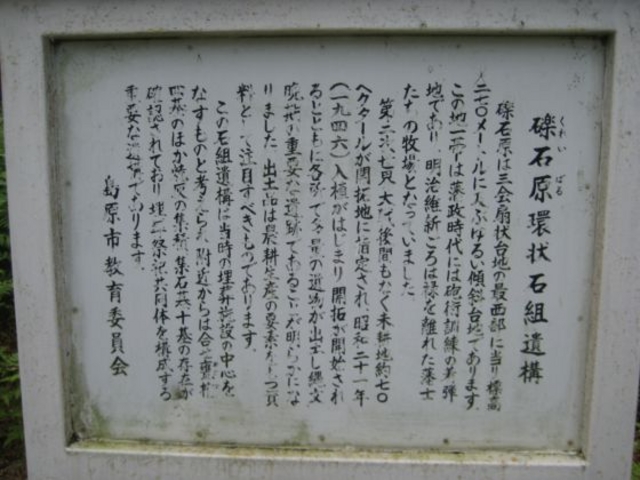 くれい ばる
礫石原環状石組遺構
礫石原は三会扇状台地の最西部に当り標高
二七〇メートルに及ぶゆるい傾斜台地であります。
この地一帯は藩政時代には砲術訓練の着弾
地であり、明治維新ごろは禄を離れた藩士
たちの牧場となっていました。
第二次世界大戦後間もなく未耕地約七〇
ヘクタールが開拓地に指定され、昭和二十一年
(一九四六)入植がはじまり開拓が開始され
るとともに各所で多量の遺物が出土し縄文
晩期の重要な遺跡であることが明らかにな
りました。出土品は農耕生産の要素をもつ資
料として注目すべきものであります。
この石組遺構は当時の埋葬施設の中心を
なすものと考えられ、附近からは合せ甕棺
のほか の集積、集石 十基の存在が
確認されており埋葬祭祀共同体を構成する
重要な遺構であります。
島原市教育委員会